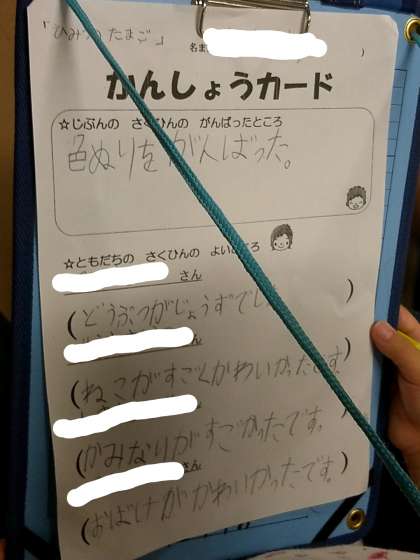 「ひみつのたまご」
名ま
)
かんしょうカード
☆じぶんの さくひんの がんばったところ
色ぬりをがんばった。
☆ともだちの さくひんの よいところ
さん
(どうぶつがじょうずでし )
(ねこがすごくかわいかったです。)
(かみなりがすごかったです。)
さん
(おばけがかわいかったです。)